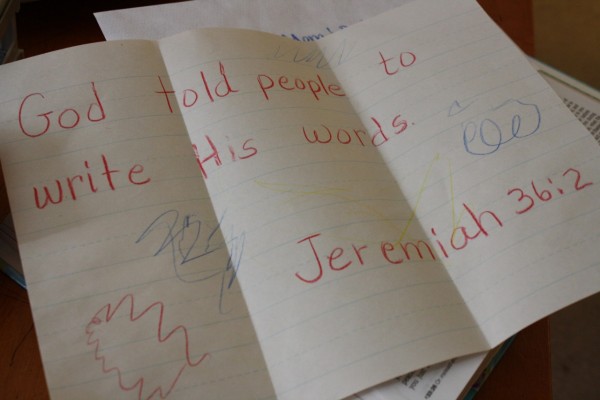 God told people to
write His words.
Jeremiah 36:2